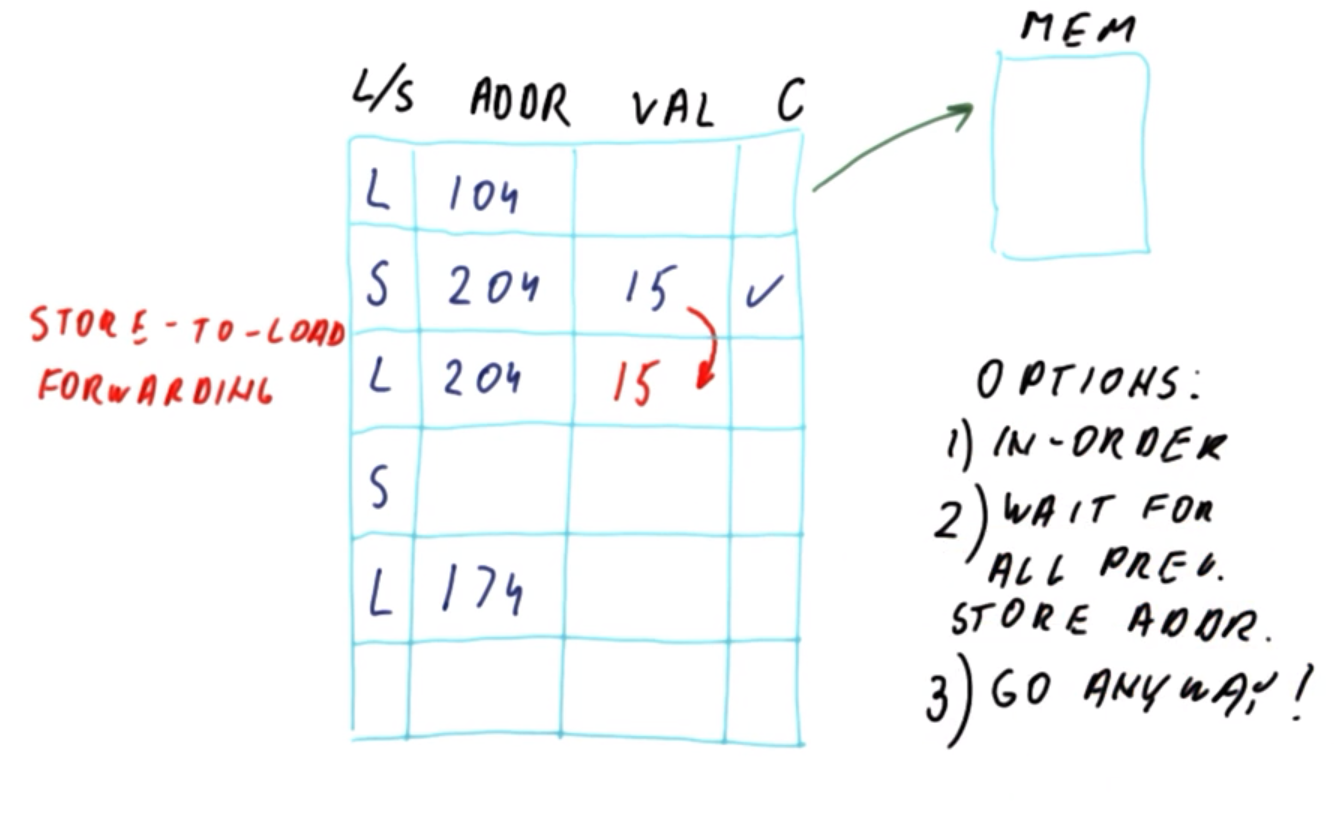 MEM
L/S ADDR VAL C
L 104
S 204 15 ✓
L 204 15
S
L 174
STORE-TO-LOAD
FORWARDING
OPTIONS:
1) IN-ORDER
2) WAIT FOR
ALL PREV.
STORE ADDR.
3) GO ANYWAY!